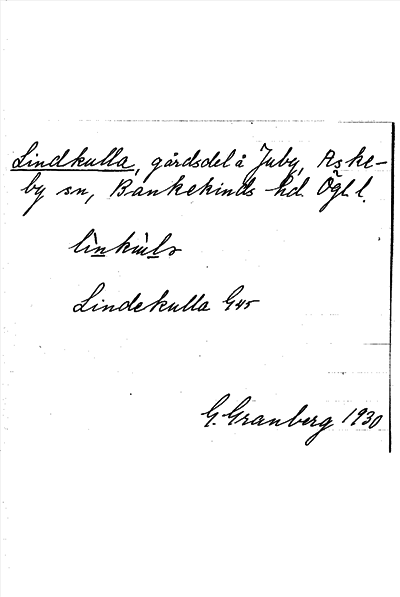 Lindkulla, gårdsdel å Juby, Aske-
by sn, Bankekinds hd Ögl l.
Lindekulla G45
G. Granberg 1930